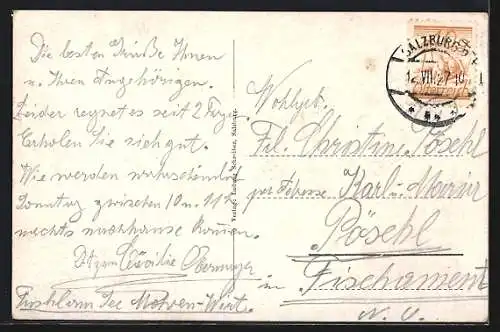 Die besten Grüße Ihnen
u. Ihren Angehörigen.
Leider regnet es seit 2 Tagen
Erholen Sie sich gut.
Wir werden wahrscheinlich
Sonntag zwischen 10 u. 11 h
nachts nachhause kommen.
Cäcilie Obermayer
Fuschl am See Mohren-Wirt.
Verlag: Ludwig Schreiber, Salzburg.
SALZBURG 5
12.VII.27.10
Wohlgeb.
Frl. Christine Pöschl
per Adresse Karl u. Marie
Pöschl
in Fischament
N. Ö.